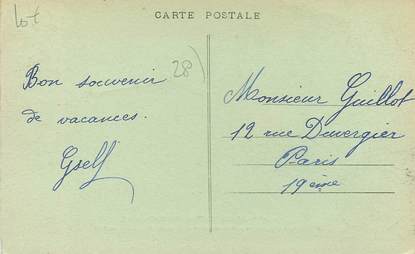 Lot
CARTE POSTALE
28)
Bon souvenir
de vacances.
Gself
Monsieur Guillot
12 rue Duvergier
Paris
19ème